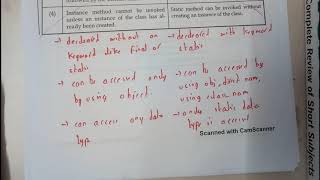 (4) Instance method cannot be invoked unless an instance of the class has already been created.
Static method can be invoked without creating an instance of the class.
→ declared without an keyword like final or static
→ declared with keyword static
→ can be accessed only by using object.
→ can be accessed by using obj, direct name, using class name
→ can access any data type
→ only static data type is access
Scanned with CamScanner
Complete Review of Short Subjects